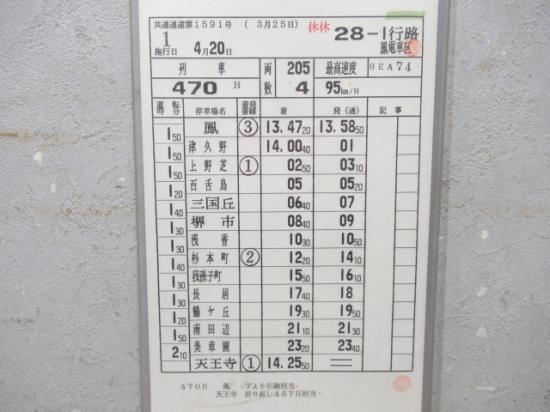 共通通達第1591号 (3月25日) 休休 28-1行路
1
施行日 4月20日 鳳電車区
列車 両数 205 最高速度 BEA74
470H 4 95km/H
運転時分 停車場名 着発番線 着 発(通) 記事
鳳 ③ 13.47 20 13.58 50
1 50 津久野 14.00 40 01
1 50 上野芝 ① 02 50 03 10
1 50 百舌鳥 05 05 20
1 20 三国丘 06 40 07
1 40 堺市 08 40 09
1 30 浅香 10 30 10 50
1 30 杉本町 ② 12 20 14 10
1 40 我孫子町 15 50 16 10
1 30 長居 17 40 18
1 30 鶴ケ丘 19 30 19 50
1 20 南田辺 21 10 21 30
1 50 美章園 23 20 23 40
2 10 天王寺 ① 14.25 50 =
470H 鳳 7より引継担当
天王寺 折り返し457H担当